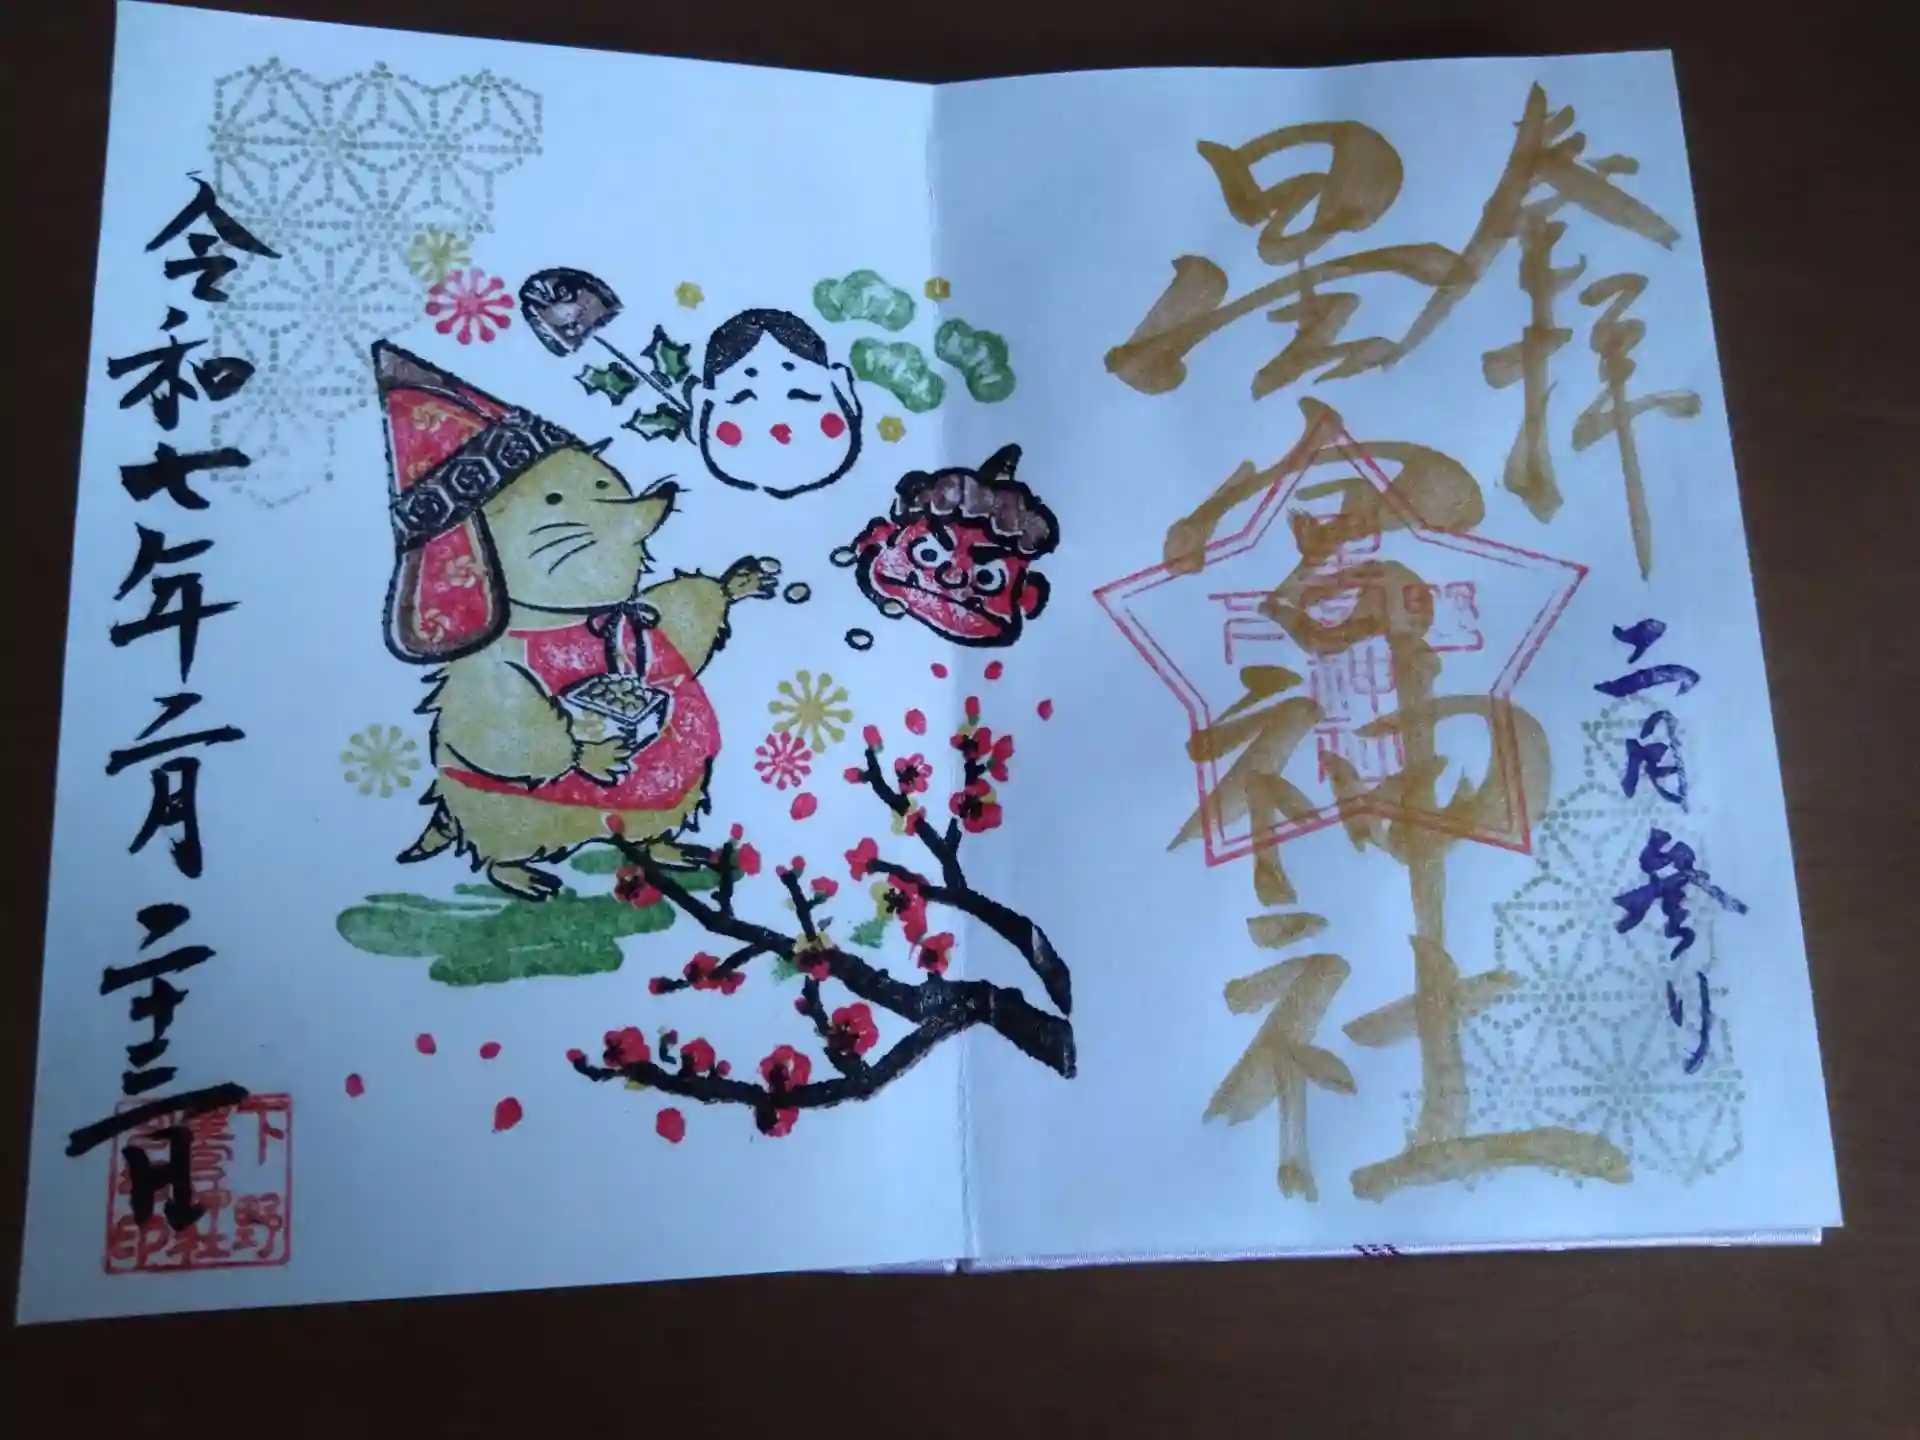 奉拝
二月参り
星宮神社
下野
星宮神社
令和七年二月二十三日
下野
星宮神社